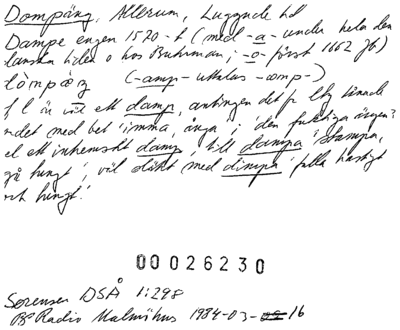 Dompäng, Allerum, Luggude hd
Dampe engen 1570-t (med -a- under hela den
danska tiden o hos Buhrman; -o- först 1662 Jb)
(-amp- uttalas -omp-)
f l är väl ett damp, antingen det fr lty lånade
ordet med bet 'imma, ånga'; 'den fuktiga ängen'?
el ett inhemskt damp, till dampa 'stampa,
gå tungt', väl släkt med dimpa 'falla hastigt
och tungt'.
00026230
Sørensen DSÅ 1:298
BP Radio Malmöhus 1984-03-16